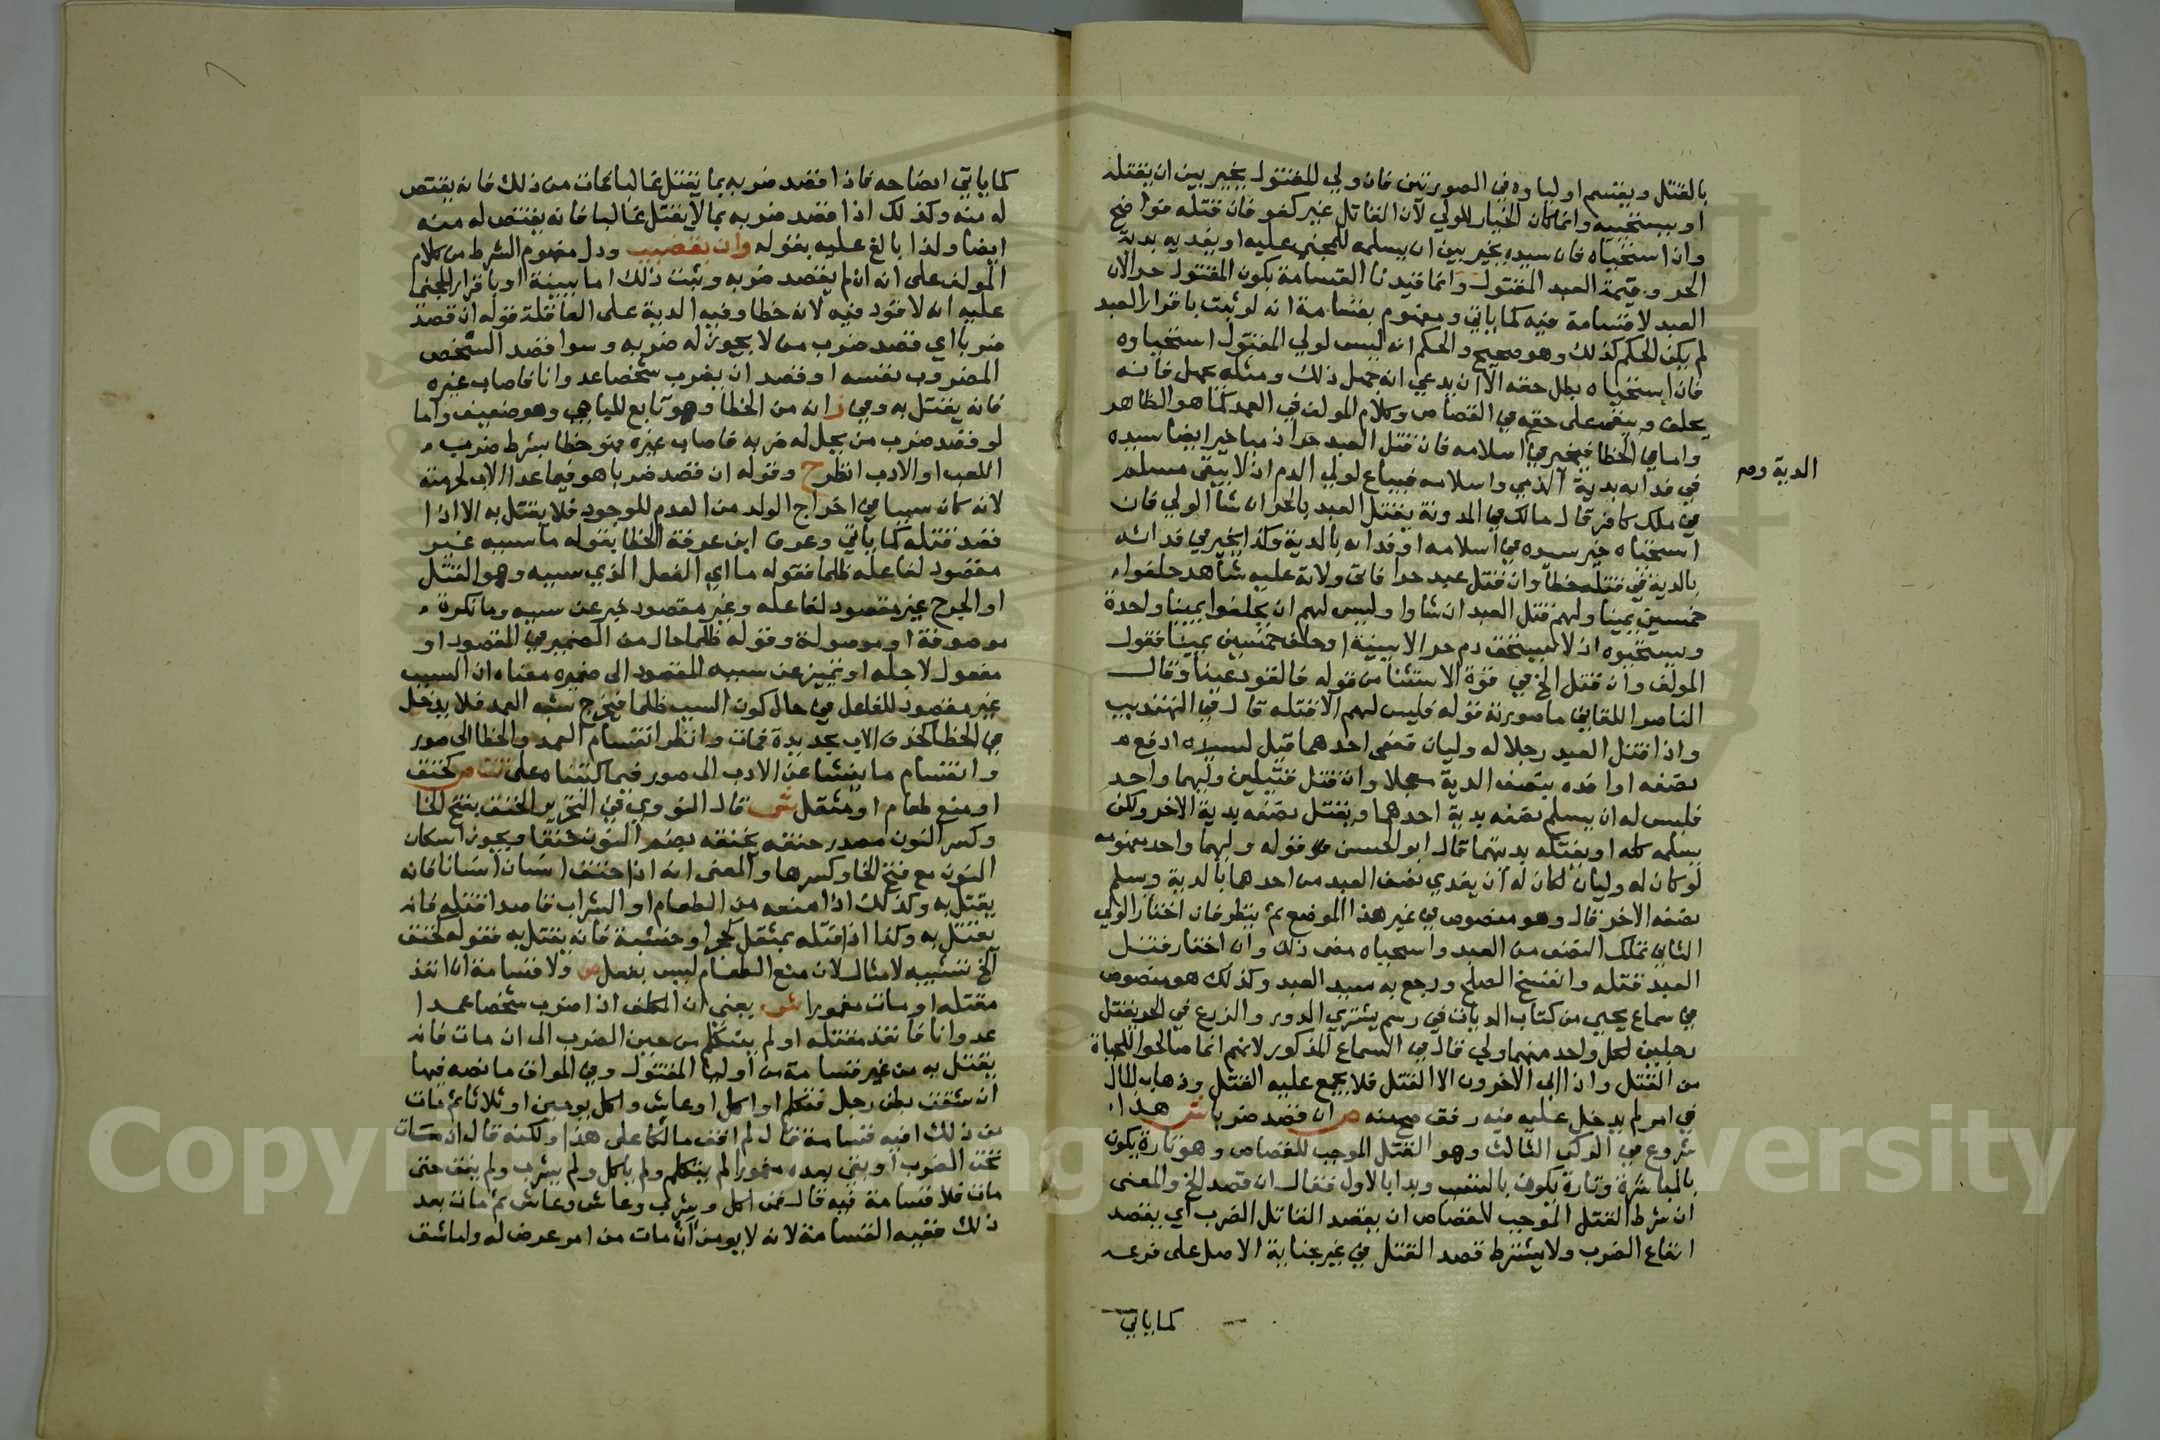 بالقتل ويقسم اولياوه في الصورتين فان ولي المقتول يخير بين ان يقتله
او يستحييه وانما كان الخيار للولي لان القاتل غير كفو فان قتله فواضح
وان استحياه فان سيده يخير بين ان يسلمه للمجني عليه او يفديه بدية
الحر وقيمة العبد المقتول وانما قيدنا القسامة بكون المقتول حرا لان
العبد لا قسامة فيه كما ياتي ومفهوم بقسامة انه لو ثبت باقرار العبد
لم يكن الحكم كذلك وهو صحيح والحكم انه ليس لولي المقتول استحياوه
فان استحياه بطل حقه الا ان يدعي انه جهل ذلك ومثله يجهل فانه
يحلف ويبقى على حقه في القصاص وكلام المولف في العمد كما هو الظاهر
واما في الخطا فيخير في اسلامه فان قتل العبد حرا ذميا خير ايضا سيده
في فدايه بدية الذمي واسلامه فيباع لولي الدم اذ لا يبقى مسلم
الدية وصح
في ملك كافر قال مالك في المدونة يقتل العبد بالحر ان شا الولي فان
استحياه خير سيده في اسلامه او فداه بالدية وكذا يخير في فدائه
بالدية في قتله خطأ وان قتل عبد حرا فاتى ولاته عليه شاهد حلفوا
خمسين يمينا ولهم قتل العبد ان شاوا وليس لهم ان يحلفوا يمينا واحدة
ويستحيوه اذ لا يستحق دم حر الا ببينة او حلف خمسين يمينا فقول
المولف وان قتل الخ في قوة الاستثنا من قوله فالقود عينا وقال
الناصر اللقاني ما صورته قوله فليس لهم الا قتله قال في التهذيب
واذا قتل العبد رجلا له وليان فعفى احدهما قيل لسيده ادفع
نصفه او افده بنصف الدية مسجلا وان قتل قتيلين وليهما واحد
فليس له ان يسلم نصفه بدية احدهما ويقتل نصفه بدية الاخر ولكن
يسلمه كله او يفتكه بديتهما قال ابو الحسن قوله وليهما واحد مفهومه
لو كان له وليان لكان له ان يفدي نصف العبد من احدهما بالدية ويسلم
نصفه الاخر قال وهو منصوص في غير هذا الموضع ثم ينظر فان اختار الولي
الثاني تملك النصف من العبد واستحياه مضى ذلك وان اختار قتل
العبد قتله وانفسخ الصلح ورجع به سيد العبد وكذلك هو منصوص
في سماع يحيى من كتاب الديات في رسم يشتري الدور والزرع في الحر يقتل
رجلين لكل واحد منهما ولي قال في السماع المذكور لانهم انما صالحوا للنجاة
من القتل واذا ابى الاخرون الا القتل فلا يجمع عليه القتل وذهاب المال
في امر لم يدخل عليه فيه رفق صح منه ص ان قصد ضربا ش هذا
شروع في الركن الثالث وهو القتل الموجب للقصاص وهو تارة يكون
بالمباشرة وتارة يكون بالسبب وبدا بالاول فقال ان قصد الخ والمعنى
ان شرط القتل الموجب للقصاص ان يقصد القاتل الضرب اي يقصد
ايقاع الضرب ولا يشترط قصد القتل في غير جناية الاصل على فرعه
كما ياتي
كما ياتي ايضاحه فاذا قصد ضربه بما يقتل غالبا فمات من ذلك فانه يقتص
له منه وكذلك اذا قصد ضربه بما لا يقتل غالبا فانه يقتص له منه
ايضا ولذا بالغ عليه بقوله وان بقضيب ودل مفهوم الشرط من كلام
المولف على انه ان لم يقصد ضربه وثبت ذلك اما ببينة او باقرار المجني
عليه انه لا قود فيه لانه خطا وفيه الدية على العاقلة قوله ان قصد
ضربا اي قصد ضرب من لا يجوز له ضربه وسوا قصد الشخص
المضروب نفسه او قصد ان يضرب شخصا عدوانا فاصاب غيره
فانه يقتل به وفي ز انه من الخطا وهو تابع للمباحي وهو ضعيف واما
لو قصد ضرب من يحل له ضربه فاصاب غيره فهو خطا بشرط ضرب
اللعب او الادب انظر ح وقوله ان قصد ضربا هو فيما عدا الاب لحرمته
لانه كان سببا في اخراج الولد من العدم للوجود فلا يقتل به الا اذا
قصد قتله كما ياتي وعرف ابن عرفة الخطا بقوله ما سببه غير
مقصود لفاعله ظلما فقوله ما اي الفعل الذي سببه وهو القتل
او الجرح غير مقصود لفاعله وغير مقصود خبر عن سببه وما نكرة
موصوفة او موصولة وقوله ظلما حال من الضمير في المقصود او
مفعول لاجله او تمييز عن سببه المقصود الى ضميره معناه ان السبب
غير مقصود للفاعل في حال كون السبب ظلما فيخرج شبه العمد فلا يدخل
في الخطا لحذف الاب بحديدة فمات وانظر انقسام العمد والخطا الى صور
وانقسام ما ينشا عن الادب الى صور فيما كتبناه على ص كخنق
او منع طعام او مثقل ش قال النووي في التحرير الخنق بفتح الخا
وكسر النون مصدر خنقه يخنقه بضم النون خنقا ويجوز اسكان
النون مع فتح الخا وكسرها والمعنى انه اذا خنق انسان انسانا فانه
يقتل به وكذلك اذا منعه من الطعام او الشراب قاصدا قتله فانه
يقتل به وكذا اذا قتله بمثقل كحجر او خشبة فانه يقتل به فقوله كخنق
الخ تشبيه لا مثال لان منع الطعام ليس بفعل ص ولا قسامة ان انفذ
مقتله او مات مغمورا ش يعني ان المكلف اذا ضرب شخصا عمدا
عدوانا فانفذ مقتله او لم يتكلم من حين الضرب الى ان مات فانه
يقتل به من غير قسامة من اوليا المقتول وفي المواق ما نصه فيها
ان شقت بطن رجل فتكلم او اكل او عاش واكل يومين او ثلاثا ثم مات
من ذلك افيه قسامة قال لم اقف مالكا على هذا ولكنه قال ان مات
تحت الضرب او بقي بعده مغمورا لم يتكلم ولم ياكل ولم يشرب ولم يفق حتى
مات فلا قسامة فيه قال فمن اكل وشرب وعاش وعاش ثم مات بعد
ذلك ففيه القسامة لانه لا يومن ان مات من امر عرض له ولما شق